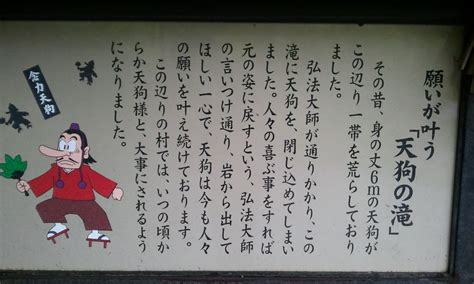 願いが叶う
「天狗の滝」
その昔、身の丈6mの天狗が
この辺り一帯を荒らしており
ました。
弘法大師が通りかかり、この
滝に天狗を、閉じ込めてしまい
ました。人々の喜ぶ事をすれば
元の姿に戻すという、弘法大師
の言いつけ通り、岩から出して
ほしい一心で、天狗は今も人々
の願いを叶え続けております。
この辺りの村では、いつの頃か
らか天狗様と、大事にされるよう
になりました。
金力天狗